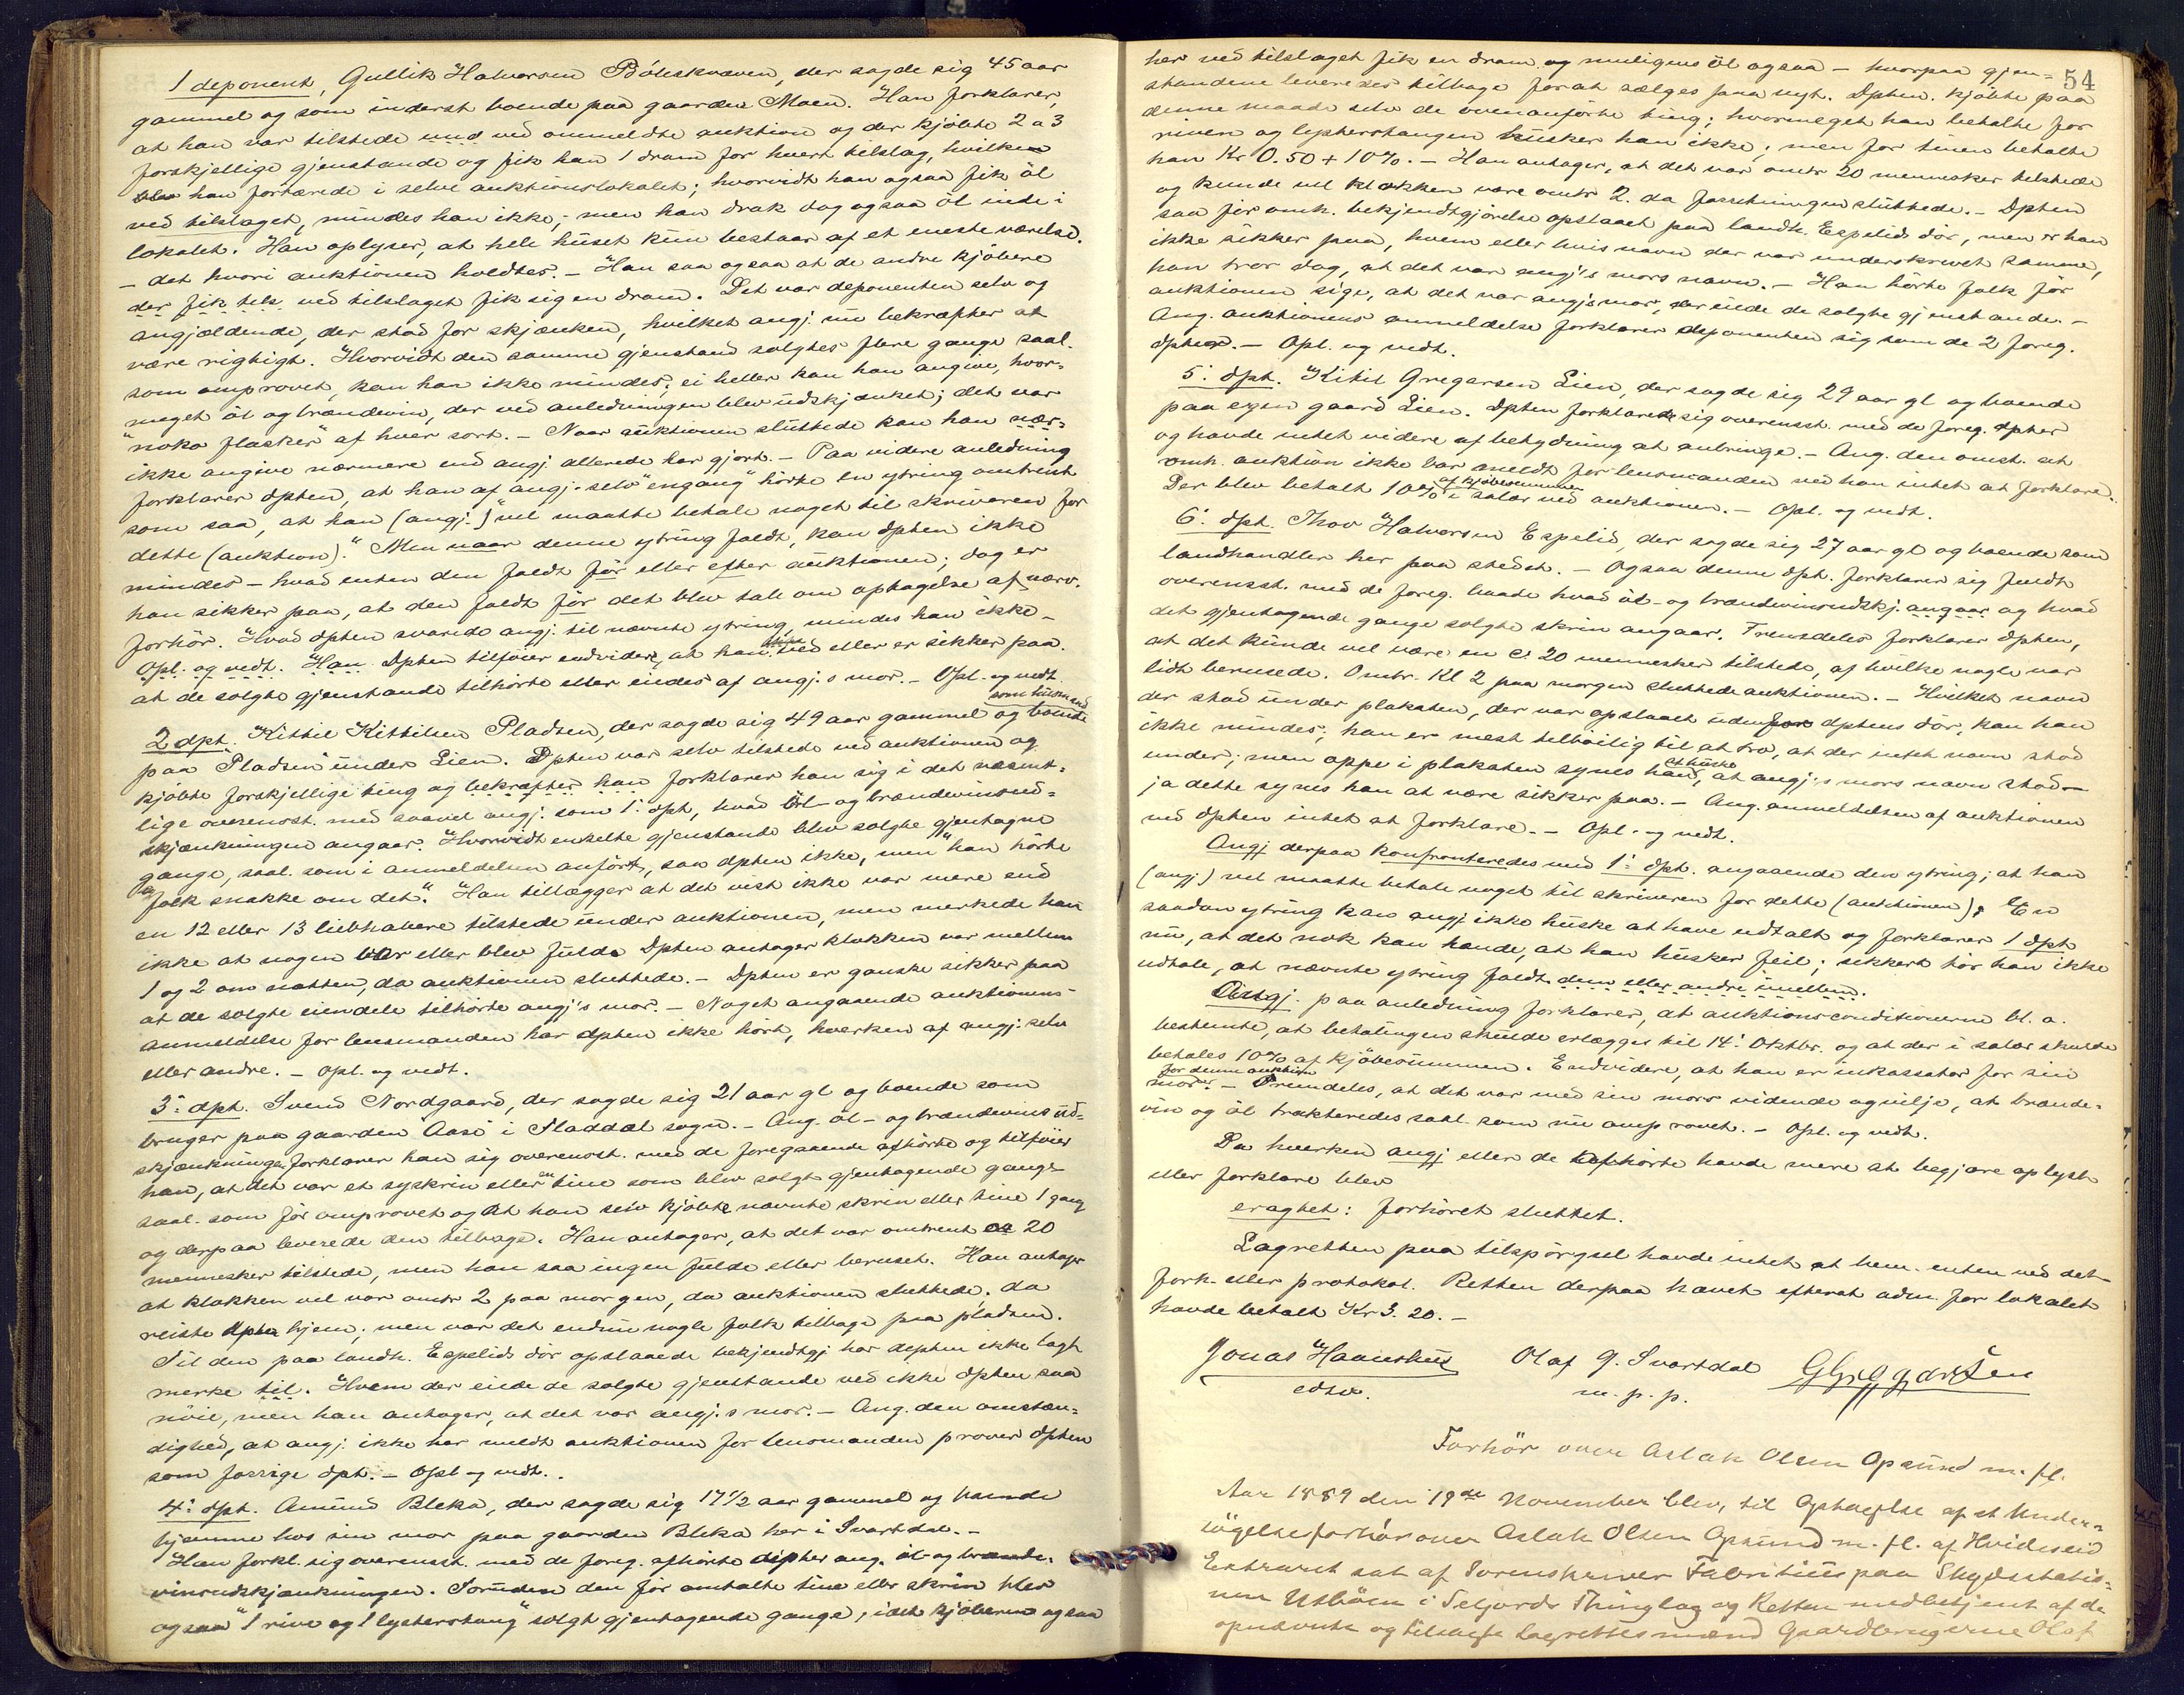 1 deponent, Gullik Halvorsen Böleskræven, der sagde sig 45 aar
gammel og som inderst boende paa gaarden Moen. Han forklarer,
at han var tilstede und ved ommeldte auktion og der kjöbte 2 a 3
forskjellige gjenstande og fik han 1 dram for hvert tilslag, hvilken
blev han fortærede i selve auktionslokalet; hvorvidt han ogsaa fik öl
ved tilslaget, mindes han ikke; men han drak dog ogsaa öl inde i
lokalet. Han oplyser, at hele huset kun bestaar af et eneste værelse.
– det hvori auktionen holdtes. – Han saa ogsaa at de andre kjöbere
der fik tils ved tilslaget fik sig en dram. Det var deponenten selv og
angjældende, der stod for skjænken, hvilket angj. nu bekræfter at
være rigtigt. Hvorvidt den samme gjenstand solgtes flere gange saal.
som omprovet, kan han ikke mindes; ei heller kan han angive, hvor-
meget öl og brændevin, der ved anledningen blev udskjænket; det var
"noko flasker" af hver sort. – Naar auktionen sluttede kan han nær-
ikke angive nærmere end angj. allerede har gjort. – Paa videre anledning
forklarer dpten, at han af angj. selv "engang" hörte en ytring omtrent
som saa, at han (angj.) "vel maatte betale noget til skriveren for
dette (auktion)." Men naar denne ytring faldt, kan dpten ikke
mindes – hvad enten den faldt för eller efter auktionen; dog er
han sikker paa, at den faldt för det blev tale om optagelse af nærv.
forhör. Hvad dpten svarede angj. til nævnte ytring mindes han ikke –
Opl. og vedt. Han Dpten tilföier endvidere, at han ved eller er sikker paa.
at de solgte gjenstande tilhörte eller eiedes af angj.s mor. – Opl. og vedt.
som husmand
2 dpt. Kittil Kittilsen Pladsen, der sagde sig 49 aar gammel og boende
paa Pladsen under Lien. Dpten var selv tilstede ved auktionen og
kjöbte forskjellige ting og bekræfter han forklarer han sig i det væsent-
lige overenst. med saavel angj. som 1ste dpt, hvad öl- og brændevinsud-
skjænkningen angaar. Hvorvidt enkelte gjenstande blev solgte gjentagne
gange, saal. som i anmeldelsen anfört, saa dpten ikke, men "han hörte
folk snakke om det." Han tillægger at det vist ikke var mere end
en 12 eller 13 liebhabere tilstede under auktionen, men merkede han
ikke at nogen var eller blev fulde Dpten antager klokken var mellem
1 og 2 om natten, da auktionen sluttede. – Dpten er ganske sikker paa
at de solgte eiendele tilhörte angj's mor. – Noget angaaende auktionens
anmeldelse for lensmanden har dpten ikke hört, hverken af angj. selv
eller andre. – Opl. og vedt.
3: dpt. Svend Nordgaard, der sagde sig 21 aar gl og boende som
bruger paa gaarden Aase i Fladdal sogn. – Ang. öl- og brændevins ud-
skjænkningen forklarer han sig overenst. med de foregaaende afhörte og tilföier
han, at det var et syskrin eller en tine som blev solgt gjentagende gange
saal. som för omprovet og at han selv kjöbte nævnte skrin eller tine 1 gang
og derpaa leverede den tilbage. Han antager, at det var omtrent ca 20
mennesker tilstede, men han saa ingen fulde eller beruset. Han antager
at klokken vel var omtr 2 paa morgen, da auktionen sluttede. da
reiste dpten hjem; men var det endnu nogle folk tilbage paa pladsen.
Til den paa landh. Espelids dör opslaaede bekjendtgj har depten ikke lagt
merke til. Hvem der eiede de solgte gjenstande ved ikke dpten saa
nöie, men han antager, at det var angj.s mor. – Ang. den omstæn-
dighed, at angj. ikke har meldt auktionen for lensmanden prover dpten
som forrige dpt. – Opl og vedt.
4: dpt. Amund Bleka, der sagde sig 17½ aar gammel og boende
hjemme hos sin mor paa gaarden Bleka her i Svartdal. –
Han forkl. sig overensst. med de foreg. afhörte dpter ang. öl- og brænde-
vinsudskjænkningen. Foruden den för omtalte tine eller skrin blev
ogsaa "1 rive og 1 lysterstang" solgt gjentagende gange, idet kjöberen ogsaa
54
her ved tilslaget fik en dram og muligens öl ogsaa – hvorpaa gjen-
standene leveredes tilbage forat sælges paa nyt. Dpten. kjöbte paa
denne maade selv de ovenanförte ting; hvormeget han betalte for
riven og lysterstangen husker han ikke; men for tinen betalte
han Kr 0.50 + 10%. – Han antager, at det var omtr 20 mennesker tilstede
og kunde vel klokken være omtr 2. da forretningen sluttede. – Dpten
saa för omh. bekjendtgjörelse opslaaet paa landh. Espelids dör, men er han
ikke sikker paa, hvem eller hvis navn der var underskrevet samme,
han tror dog, at det var angj's mors navn. – Han hörte folk för
auktionen sige, at det var angjs mor, der eiede de solgte gjenstande. –
Ang. auktionens anmeldelse forklarer deponenten sig som de 2 foreg.
dpter. – Opl. og vedt.
5: dpt. Kitil Gregersen Lien, der sagde sig 29 aar gl og boende
paa egen gaard Lien. Dpten forklarede sig overensst. med de foreg. dpter
og havde intet videre af betydning at anbringe. – Ang. den omst. at
omh. auktion ikke var meldt for lensmanden ved han intet at forklare.
af kjöbesummen
Der blev betalt 10% i salær ved auktionen. – Opl. og vedt.
6: dpt. Thov Halvorsen Espelid, der sagde sig 27 aar gl og boende som
landhandler her paa stedet. – Ogsaa denne dpt. forklarer sig fuldt
overensst. med de foreg. baade hvad öl- og brændevinsudskj. angaar og hvad
det gjentagende gange solgte skrin angaar. Fremdeles forklarer dpten,
at det kunde vel være en C: 20 mennesker tilstede, af hvilke nogle var
lidt berusede. Omtr. Kl 2 paa morgen sluttede auktionen. – Hvilket navn
der stod under plakaten, der var opslaaet udenfor dptens dör, kan han
ikke mindes; han er mest tilböilig til at tro, at der intet navn stod
at huske
under; men oppe i plakaten synes han, at angj.s mors navn stod –
ja dette synes han at være sikker paa. – Ang. anmeldelsen af auktionen
ved dpten intet at forklare. – Opl. og vedt.
Angj derpaa konfronteredes med 1: dpt. angaaende den ytring; at han
(angj.) vel maatte betale noget til skriveren for dette (auktionen). En
saadan ytring kan angj. ikke huske at have udtalt og forklarer 1 dpt
nu, at det nok kan hænde, at han husker feil; sikkert tör han ikke
udtale, at nævnte ytring faldt dem eller andre imellem.
Angj. paa anledning forklarer, at auktionsconditionerne bl. a.
bestemte, at betalingen skulde erlægges til 14: Oktbr. og at der i salær skulde
betales 10% af kjöbesummen. Endvidere, at han er inkassator for sin
for denne auktion
mor. – Fremdeles, at det var med sin mors vidende og vilje, at brænde-
vin og öl trakteredes saal. som nu omprovet. – Opl. og vedt.
Da hverken angj eller de afhörte havde mere at begjære oplyst
eller forklare blev
eragtet: forhöret sluttet.
Lagretten paa tilspörgsel havde intet at bem. enten ved det
forh. eller protokol. Retten derpaa hævet efterat adm. for lokalet
havde betalt Kr 3. 20. –
Jonas Haaneskus Olaf G. Svartdal G Greggersen
edsv. m. p. p.
Forhör over Aslak Olsen Opsund m. fl.
Aar 1889 den 19de November blev, til Optagelse af et Under-
sögelsesforhör over Aslak Olsen Opsund m. fl. af Hvideseid
Extraret sat af Sorenskriver Fabritius paa Skydsstatio-
nen Utböen i Seljords Thinglag og Retten medbetjent af de
opnævnte og tilkaldte Lagrettesmænd Gaardbrugerne Olaf